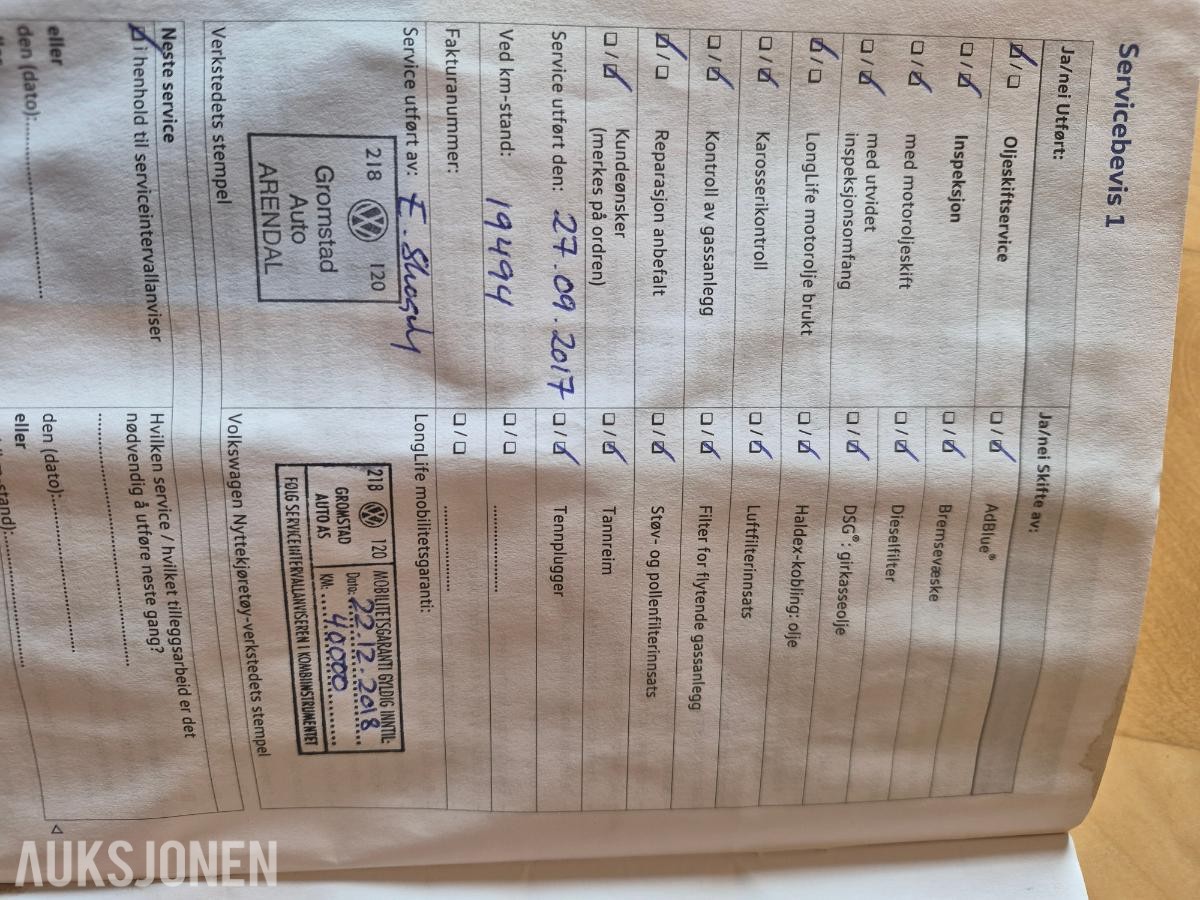 Servicebevis 1
Ja/nei Utført:
☑ / ☐ Oljeskiftservice
☐ / ☑ Inspeksjon
☐ / ☑ med motoroljeskift
☐ / ☑ med utvidet
inspeksjonsomfang
☑ / ☐ LongLife motorolje brukt
☐ / ☑ Karosserikontroll
☐ / ☑ Kontroll av gassanlegg
☑ / ☐ Reparasjon anbefalt
☐ / ☑ Kundeønsker
(merkes på ordren)
Service utført den: 27.09.2017
Ved km-stand: 19494
Fakturanummer:
Service utført av: E.
218 120
Gromstad
Auto
ARENDAL
Verkstedets stempel
Ja/nei Skifte av:
☐ / ☑ AdBlue®
☐ / ☑ Bremsevæske
☐ / ☑ Dieselfilter
☐ / ☑ DSG®: girkasseolje
☐ / ☑ Haldex-kobling: olje
☐ / ☑ Luftfilterinnsats
☐ / ☑ Filter for flytende gassanlegg
☐ / ☑ Støv- og pollenfilterinnsats
☐ / ☑ Tannreim
☐ / ☑ Tennplugger
☐ / ☐ ................
☐ / ☐ ................
LongLife mobilitetsgaranti:
218 120 MOBILITETSGARANTI GYLDIG INNTIL:
GROMSTAD Dato: 22.12.2018
AUTO AS KM: 40000
FØLG SERVICEINTERVALLANVISEREN I KOMBIINSTRUMENTET
Volkswagen Nyttekjøretøy-verkstedets stempel
Neste service
☑ i henhold til serviceintervallanviser
eller
den (dato):................
Hvilken service / hvilket tilleggsarbeid er det
nødvendig å utføre neste gang?
................
den (dato):................
eller
AUKSJONEN